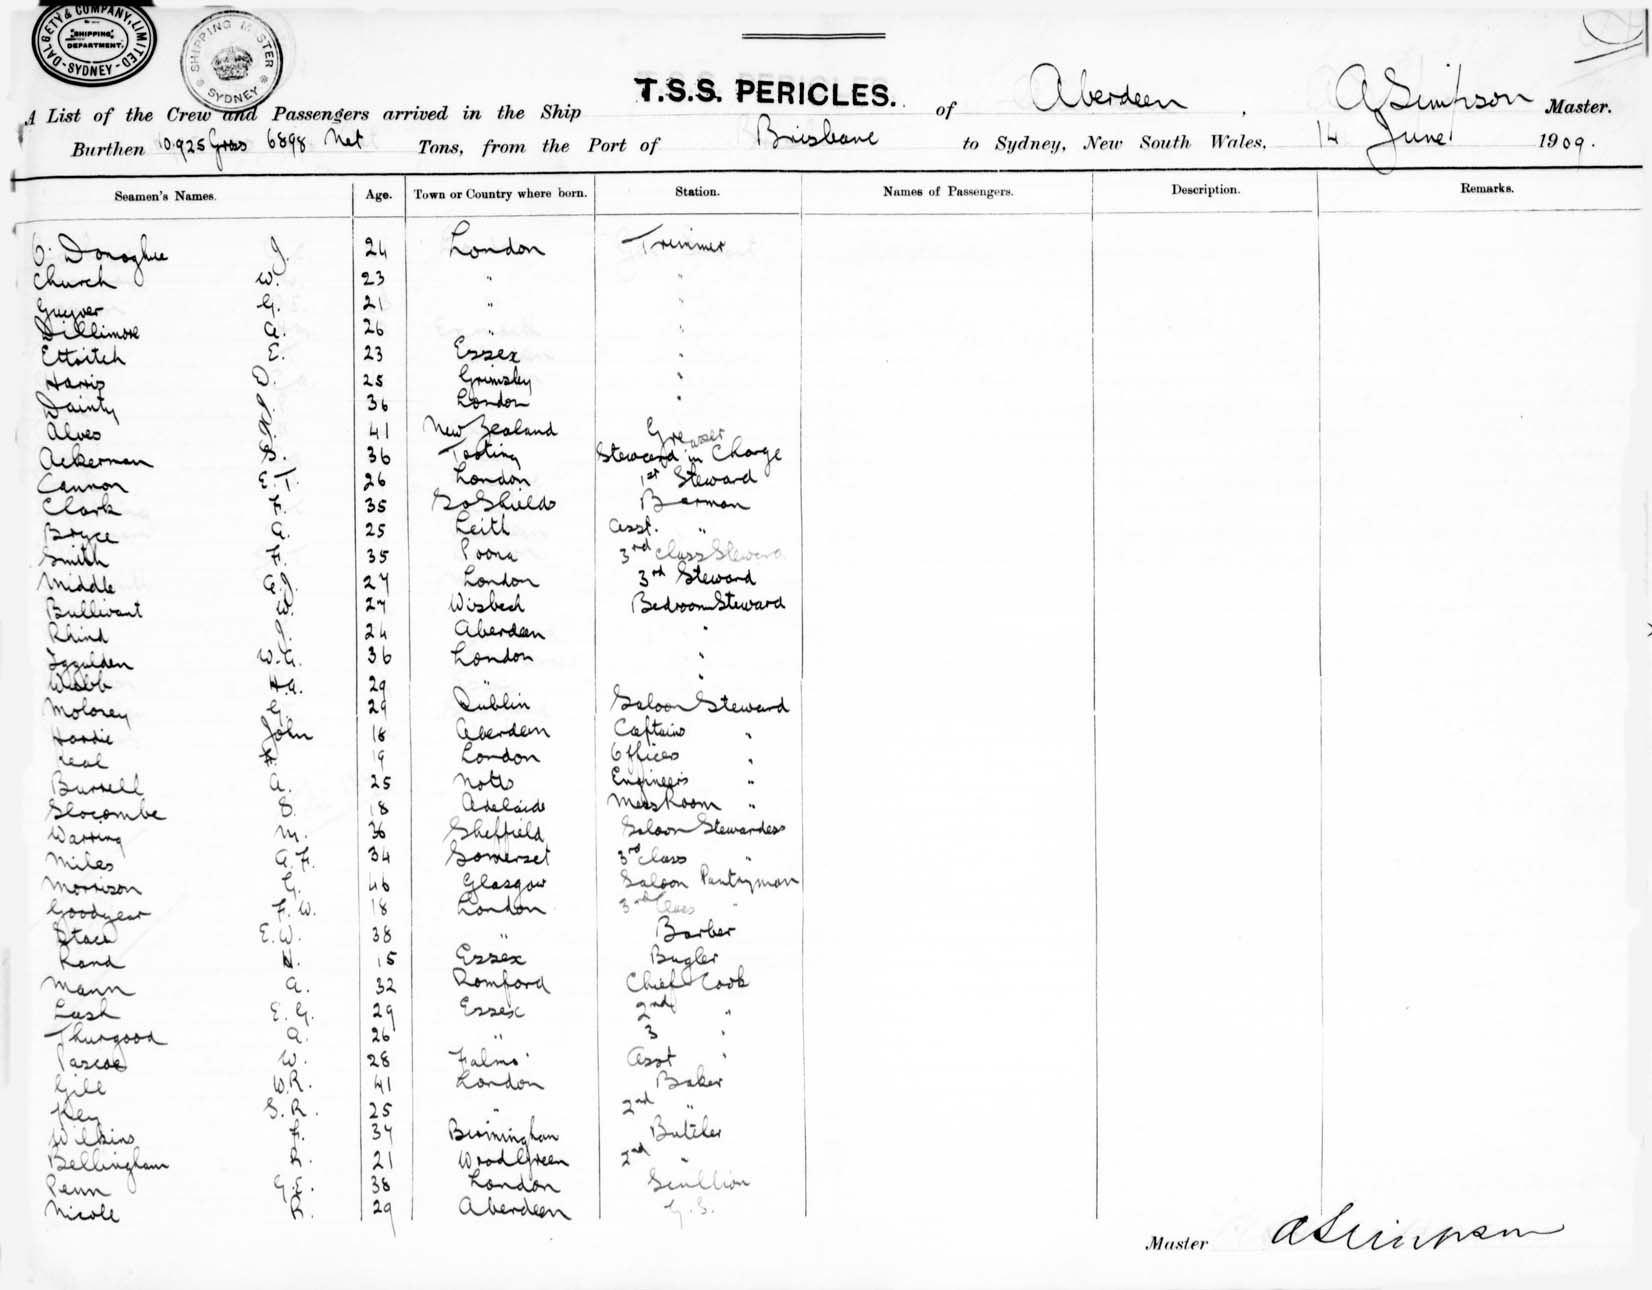 DALGETY & COMPANY, LIMITED SHIPPING DEPARTMENT. SYDNEY
SHIPPING MASTER SYDNEY
T.S.S. PERICLES.
A List of the Crew and Passengers arrived in the Ship of Aberdeen, A Simpson Master.
Burthen 10.925 Gross 6898 Net Tons, from the Port of Brisbane to Sydney, New South Wales, 14 June 1909.
Seamen's Names. Age. Town or Country where born. Station. Names of Passengers. Description. Remarks.
O'Donoghue J. 24 London Trimmer
Church W. 23 " "
Guyver G. 21 " "
Dillimore A. 26 " "
E. 23 Essex "
Harris D. 25 Grimsby "
Dainty 36 London "
Alves 41 New Zealand Greaser
Ackerman S. 36 Tooting Steward in Charge
Cannon E.T. 26 London 1st Steward
Clark F. 35 So Shields Barman
Bryce A. 25 Leith Asst. "
Smith F. 35 Poona 3rd Class Steward
Middle A.J. 27 London 3rd Steward
Bullivant W. 27 Wisbech Bedroom Steward
Rhind J. 24 Aberdeen "
Iggulden W.A. 36 London "
Webb H.A. 29 " "
Moloney G. 29 Dublin Saloon Steward
Hardie John 18 Aberdeen Captains "
Neal 19 London Offices "
Burrell A. 25 Notts Engineers "
Slocombe S. 18 Adelaide Mess Room "
Warring M. 36 Sheffield Saloon Stewardess
Miles A.F. 34 Somerset 3rd Class "
Morrison G. 46 Glasgow Saloon Pantryman
Goodyear F.W. 18 London 3rd Class "
Stace E.W. 38 " Barber
Rand H. 15 Essex Bugler
Mann A. 32 Romford Chief Cook
Lash E.G. 29 Essex 2nd "
Thurgood A. 26 " 3 "
Pascoe W. 28 Falmo' Asst "
Gill W.R. 41 London Baker
Key S.R. 25 " 2nd "
Wilkins F. 37 Birmingham Butcher
Bellingham R. 21 Wood Green 2nd "
Penn G.E. 38 London Scullion
Nicole R. 29 Aberdeen G.S.
Master A Simpson